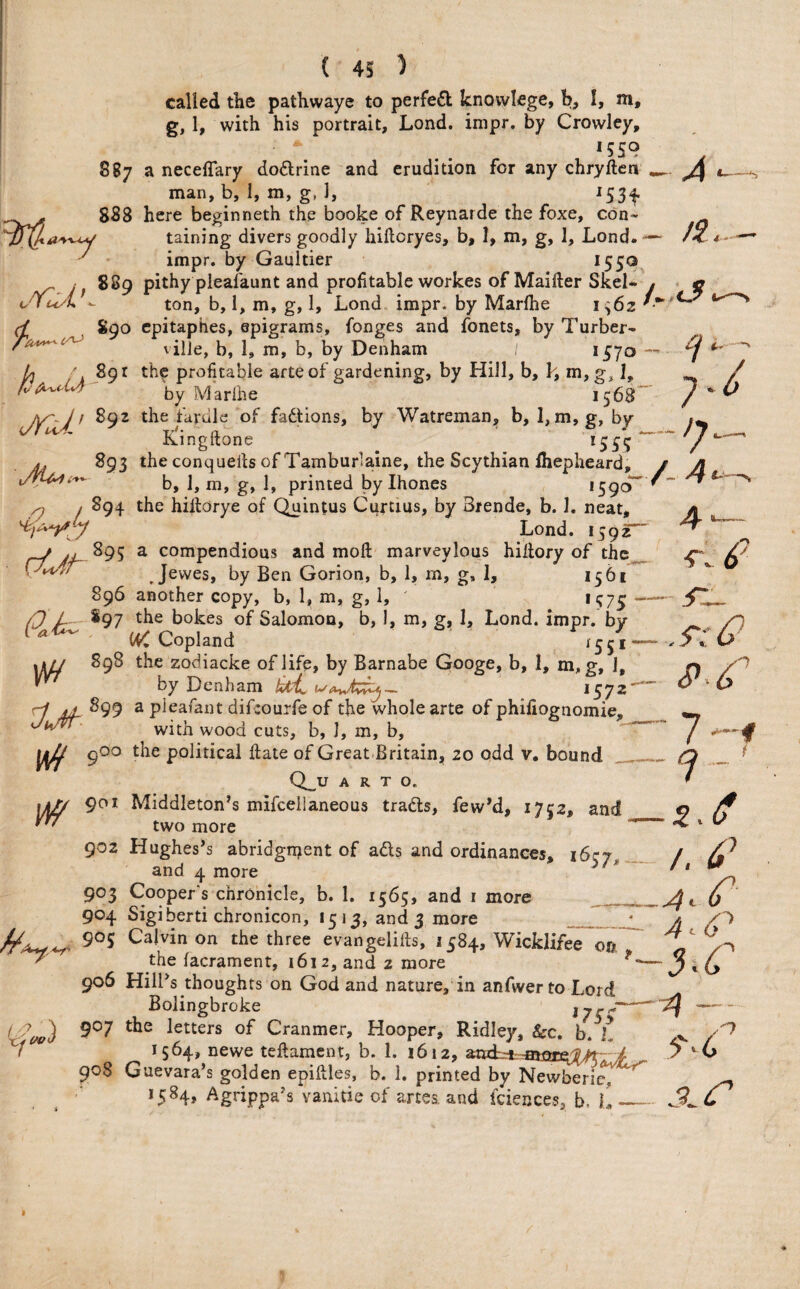 ( 45 )
called the pathwaye to perfect knowlege, b, l, m,
g, l, with his portrait, Lond. impr. by Crowley,
1550
887 a neceſſary doctrine and erudition for any chryſten
man, b, l, m, g, l, 1534
888 here beginneth the booke of Reynarde the foxe, con-
taining divers goodly hiſtoryes, b, l, m, g, l, Lond. 12
impr. by Gaultier 1550
889 pithy pleaſaunt and profitable workes of Maiſter Skel-
ton, b, l, m, g, l, Lond impr. by Marſhe 1562
890 epitaphes, epigrams, ſonges and ſonets, by Turber-
ville, b, l, m, b, by Denham 1570
891 the profitable arte of gardening, by Hill, b, l, m, g, l,
by Marſhe 1568 7 - 6
892 the fardle of factions, by Watreman, b, l, m, g, by
Kingſtone 1555 7
893 the conqueſts of Tamburlaine, the Scythian ſhepheard,
b, l, m, g, l, printed by Ihones 1590
894 the hiſtorye of Quintus Curtius, by Brende, b. l. neat,
Lond. 1592 4
895 a compendious and moſt marveylous hiſtory of the
Jewes, by Ben Gorion, b, l, m, g, l, 1561 5. 6
896 another copy, b, l, m, g, l, 1575 5
897 the bokes of Salomon, b, l, m, g, l, Lond. impr. by
W. Copland 1551 5. 6
W 898 the zodiacke of life, by Barnabe Googe, b, l, m, g, l,
by Denham 1572 8 . 6
899 a pleaſant diſcourſe of the whole arte of phiſiognomie,
with wood cuts, b, l, m, b, 7
W 900 the political ſtate of Great Britain, 20 odd v. bound 9
QUARTO.
W 901 Middleton's miſcellaneous tracts, ſew'd, 1752, and
two more 2. 6
902 Hughes's abridgment of acts and ordinances, 1657,
and 4 more 1. 6
903 Cooper's chronicle, b. l. 1565, and 1 more 4. 6
904 Sigiberti chronicon, 1513, and 3 more 4. 6
905 Calvin on the three evangeliſts, 1584, Wicklifee on
the ſacrament, 1612, and 2 more 3. 6
906 Hill's thoughts on God and nature, in anſwer to Lord
Bolingbroke 1755 4
907 the letters of Cranmer, Hooper, Ridley, &c. b. l.
1564, newe teſtament, b. l. 1612, and 1 more 5. 6
908 Guevara's golden epiſtles, b. l. printed by Newberie,
1584, Agrippa's vanitie of artes and ſciences, b. l. 3. 6